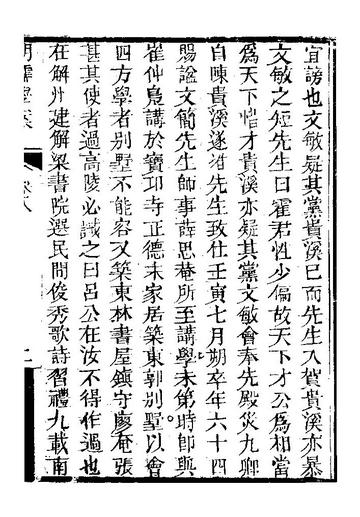 宜謗也文敏疑其黨貴溪已而先生入賀貴溪亦暴
文敏之短先生曰霍君性少偏故天下才公爲相當
爲天下惜才貴溪亦疑其黨文敏會奉先殿災九卿
自陳貴溪遂准先生致仕壬寅七月朔卒年六十四
賜諡文簡先生師事薛思庵所至講學未第時卽與
崔仲鳧講於寶邛寺正德末家居築東郭別墅以會
四方學者別墅不能容又築東林書屋鎮守廖庵張
甚其使者過高陵必誡之曰呂公在汝不得作過也
在解州建解梁書院選民間俊秀歌詩習禮九載南